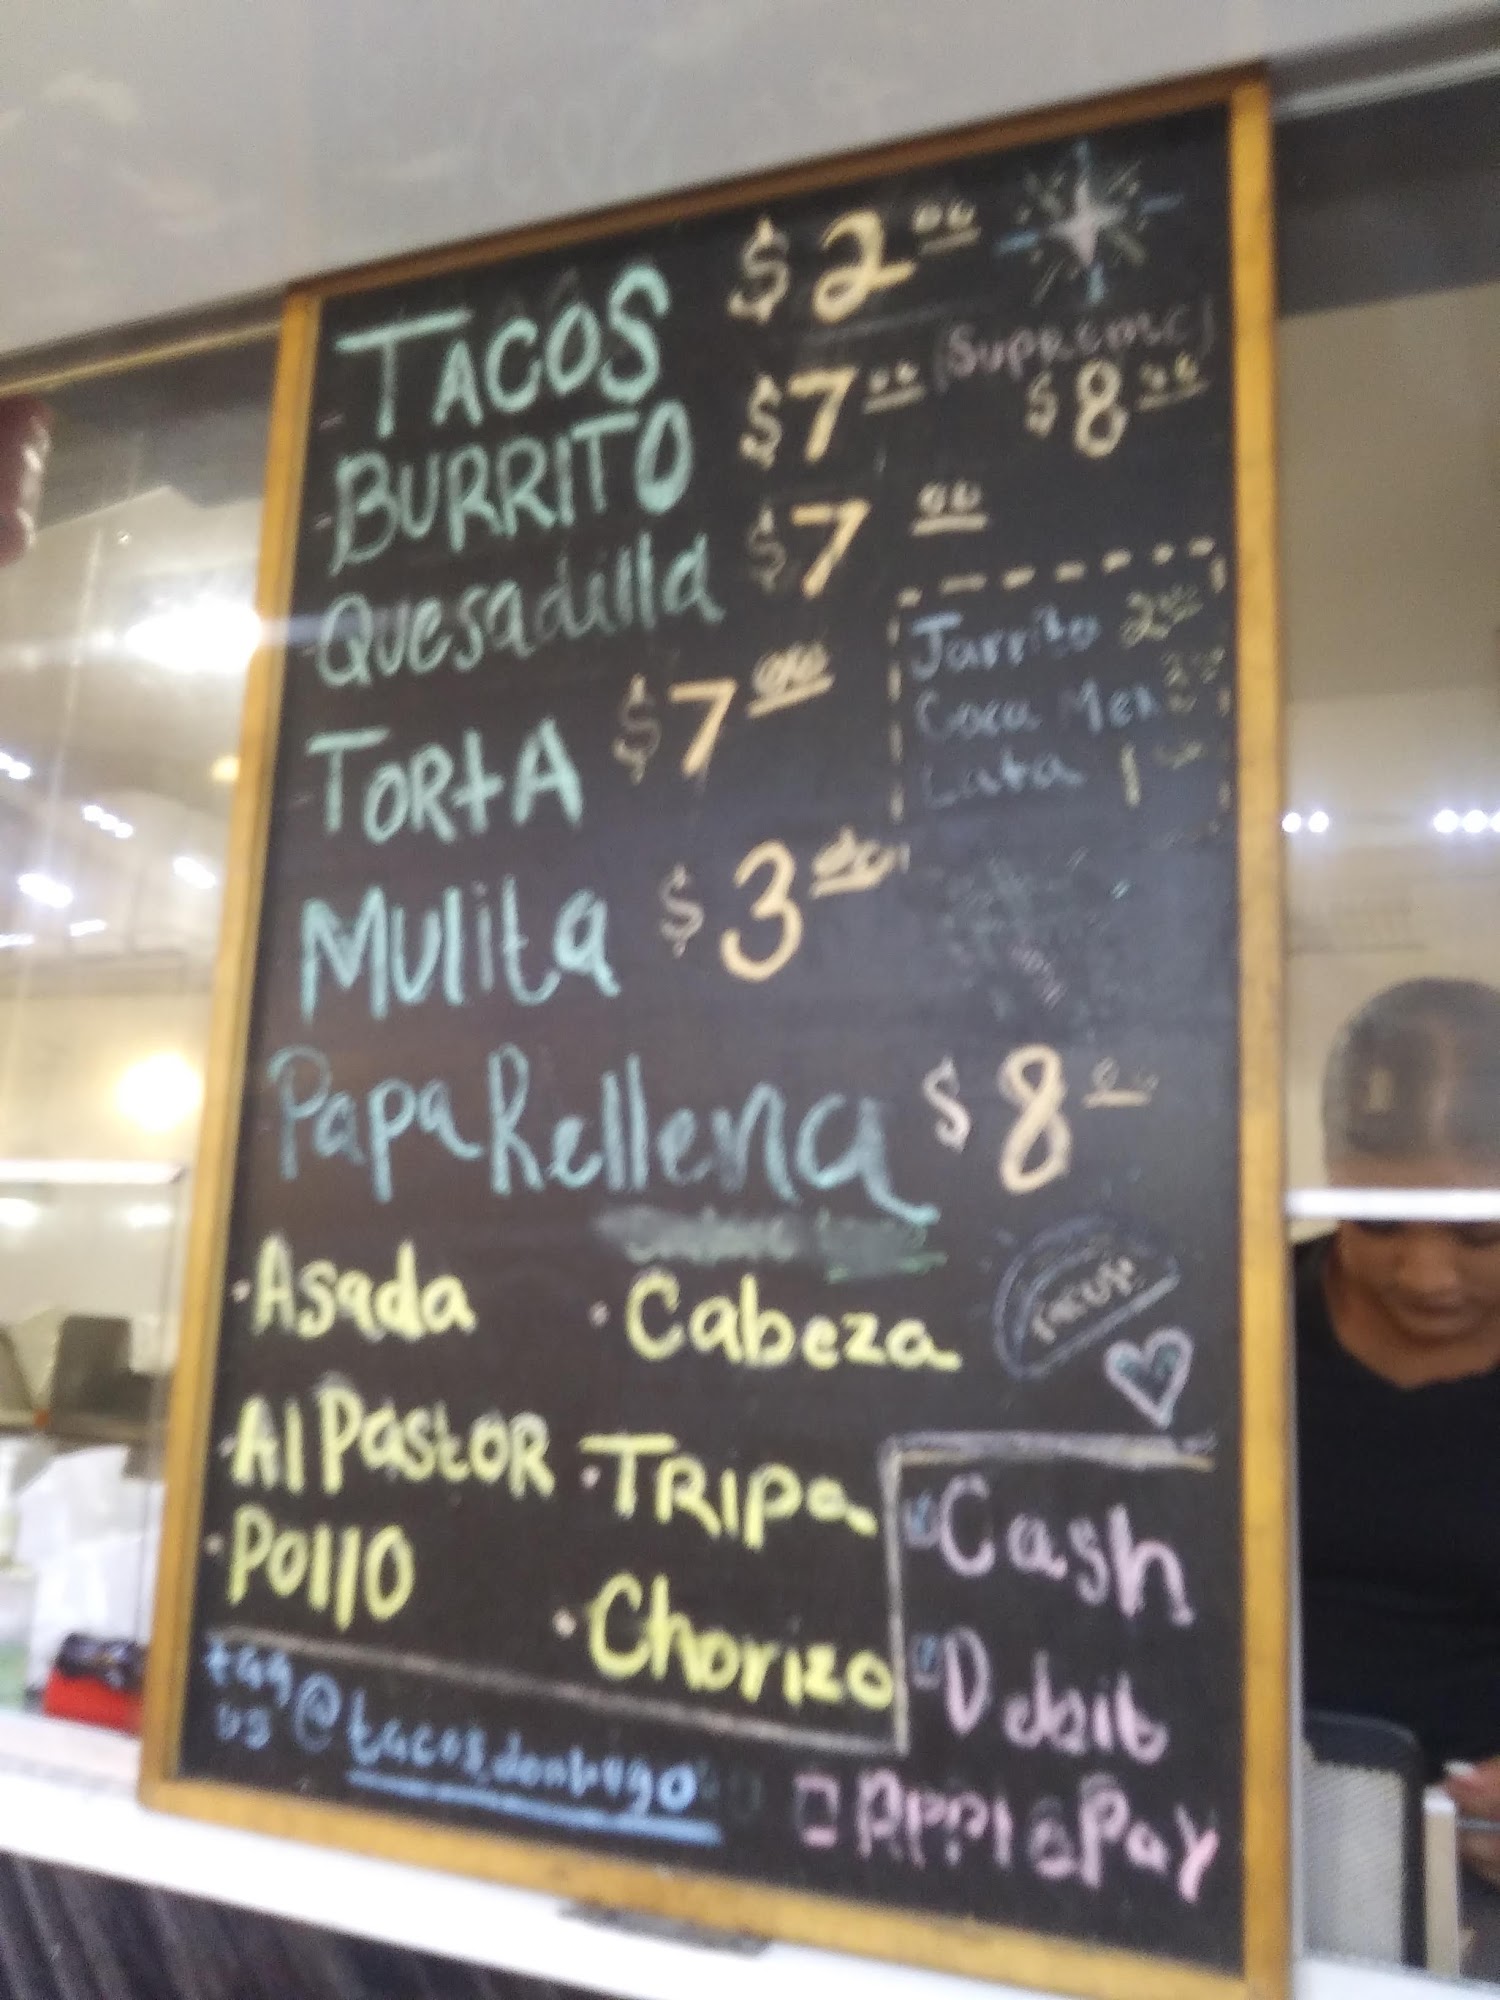 TACOS $2.00
(Supreme)
BURRITO $7.00 $8.00
Quesadilla $7.00
Jarrito 2.00
TORTA $7.00
Coca Mex
Lata 1
Mulita $3.00
Papa Rellena $8.00
· Asada · Cabeza
Tacos!
· Al PASTOR · TRIPA
· Pollo · Chorizo
Cash
Debit
Apple Pay
tag us @tacos.donhugo